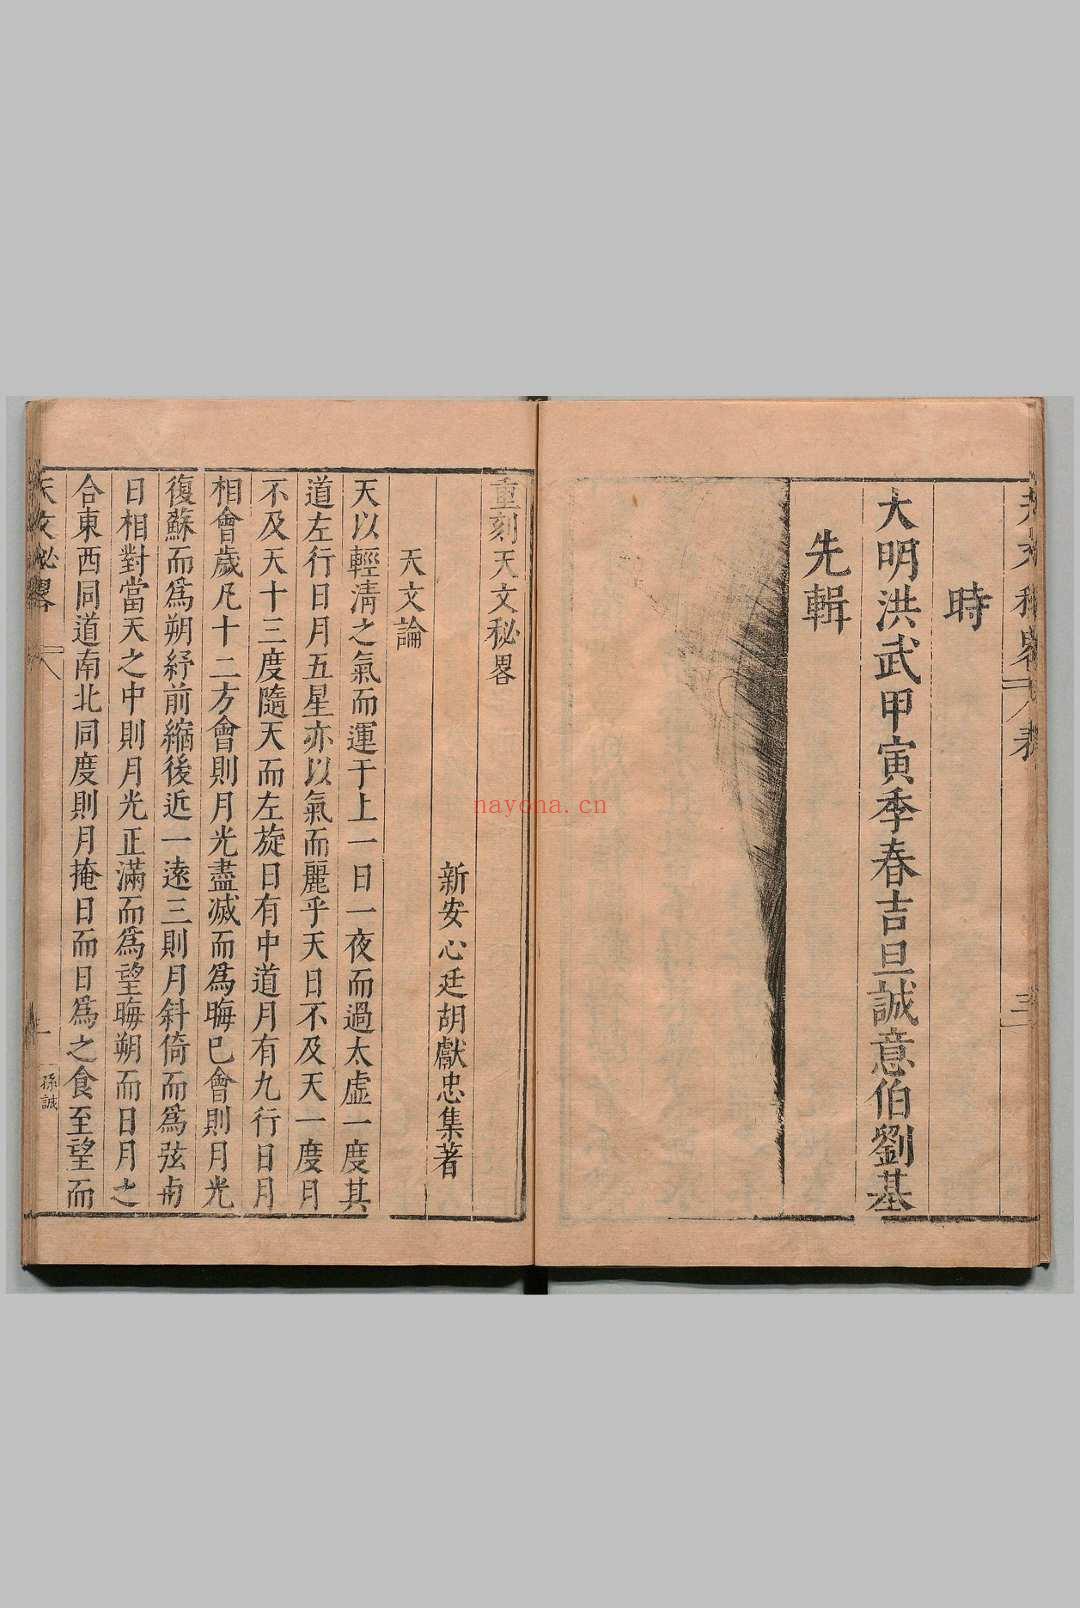 時
大明洪武甲寅季春吉旦誠意伯劉基
先輯
重刻天文秘畧
新安心廷胡獻忠集著
天文論
天以輕清之氣而運于上一日一夜而過太虛一度其
道左行日月五星亦以氣而麗乎天日不及天一度月
不及天十三度隨天而左旋日有中道月有九行日月
相會歲凡十二方會則月光盡滅而爲晦已會則月光
復蘇而爲朔紓前縮後近一遠三則月斜倚而爲弦
日相對當天之中則月光正滿而爲望晦朔而日月之
合東西同道南北同度則月掩日而日爲之食至望而
天文秘畧
孫誠
nayona.cn